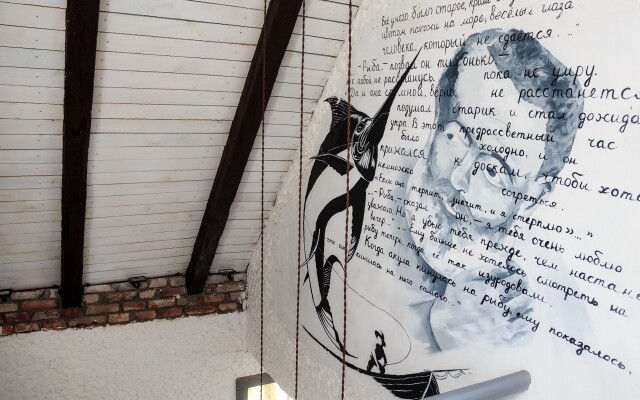 У него было старое, кроме
цветом похожи на море, весёлые глаза
человека, который не сдаётся..."
- Рыба, - позвал он тихонько,
с тобой не расстанусь, пока не умру.
Да и она со мной, верно, не расстанется
подумал старик и стал дожида
утра. В этот предрассветный час
было холодно, и он
прижался к доскам, чтобы хоть
немножко согреться.
"Если она терпит, значит, и я стерплю»..."
"- Рыба, - сказал он, - я тебя очень люблю
уважаю. Но я убью тебя прежде, чем настане
вечер." "...Ему больше не хотелось смотреть на
рыбу теперь, когда её так изуродовали.
Когда акула кинулась на рыбу, ему показалось,
кинулась на него самого..."